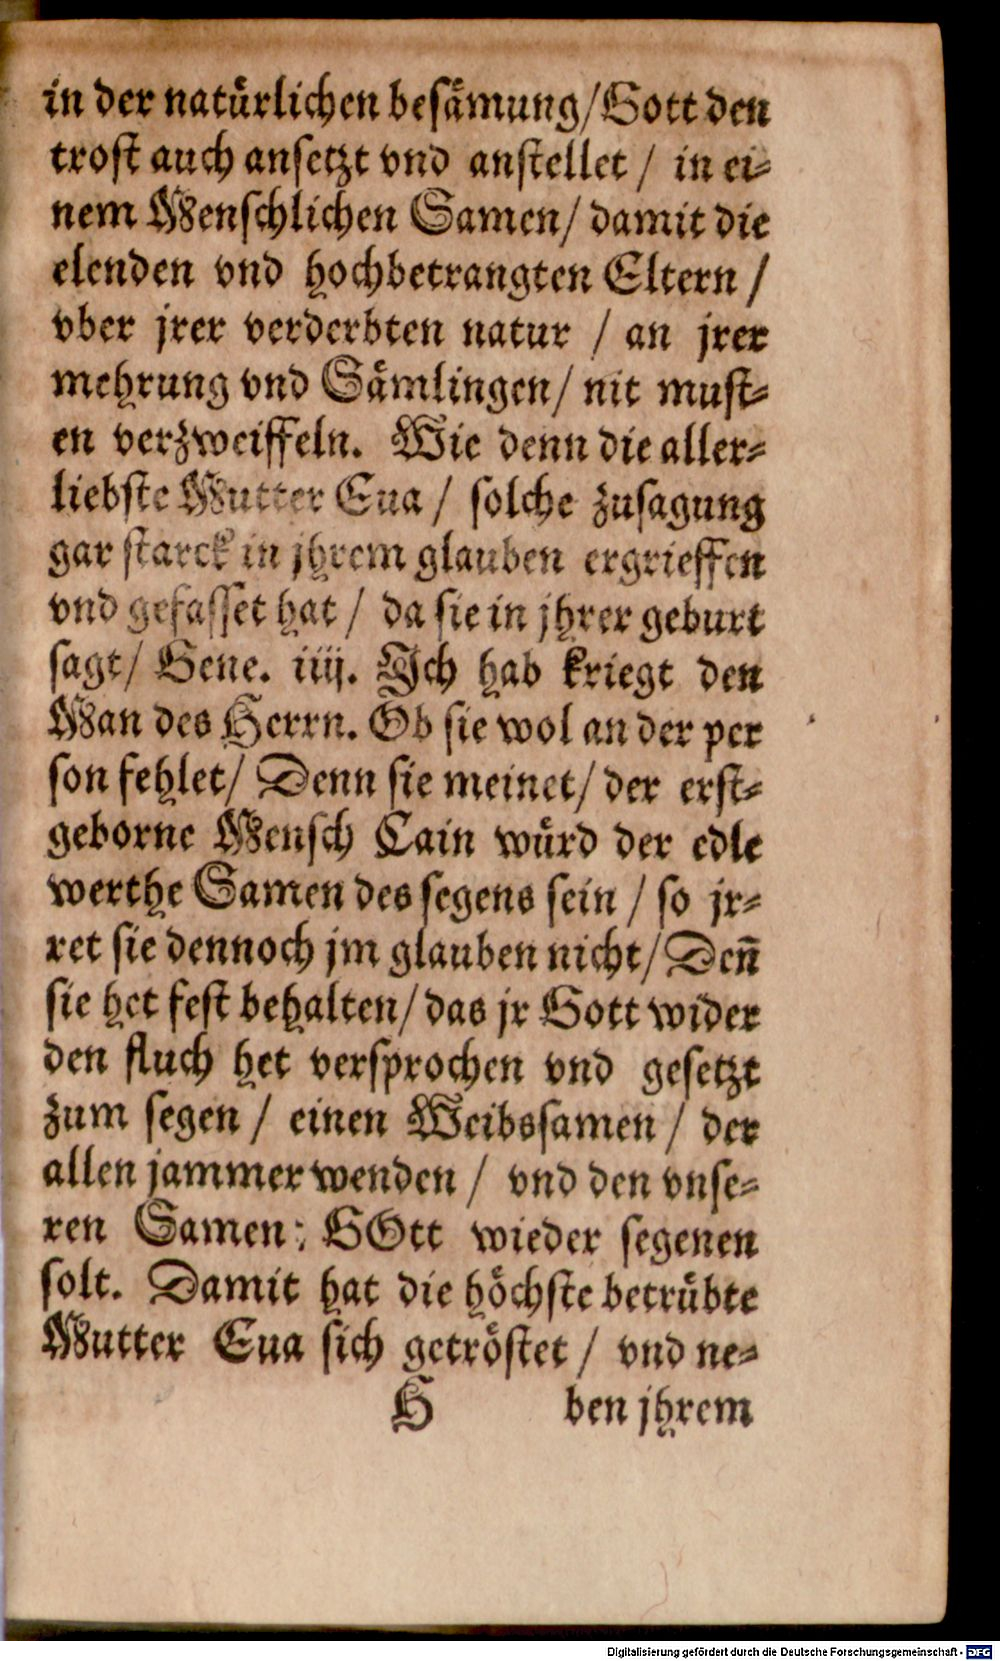 in der natürlichen besämung/Gott den
trost auch ansetzt vnd anstellet / in ei-
nem Menschlichen Samen/ damit die
elenden vnd hochbetrangten Eltern /
vber jrer verderbten natur / an jrer
mehrung vnd Sämlingen/ nit must-
en verzweiffeln. Wie denn die aller-
liebste Mutter Eua / solche zusagung
gar starck in jhrem glauben ergrieffen
vnd gefasset hat / da sie in jhrer geburt
sagt/ Gene. iiij. Ich hab kriegt den
Man des Herrn. Ob sie wol an der per
son fehlet/ Denn sie meinet/ der erst-
geborne Mensch Cain würd der edle
werthe Samen des segens sein / so jr-
ret sie dennoch jm glauben nicht/ Deñ
sie het fest behalten/ das jr Gott wider
den fluch het versprochen vnd gesetzt
zum segen / einen Weibssamen / der
allen jammer wenden / vnd den vnse-
ren Samen: GOtt wieder segenen
solt. Damit hat die höchste betrübte
Mutter Eua sich getröstet / vnd ne-
H ben jhrem
Digitalisierung gefördert durch die Deutsche Forschungsgemeinschaft - DFG